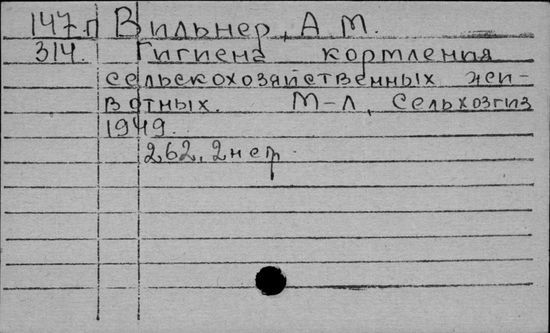 147.п Вильнер, А М.
314. Гигиена кормления
сельскохозяйственных жи-
вотных. М-Л, Сельхозгиз
1949.
262, 2 нер.